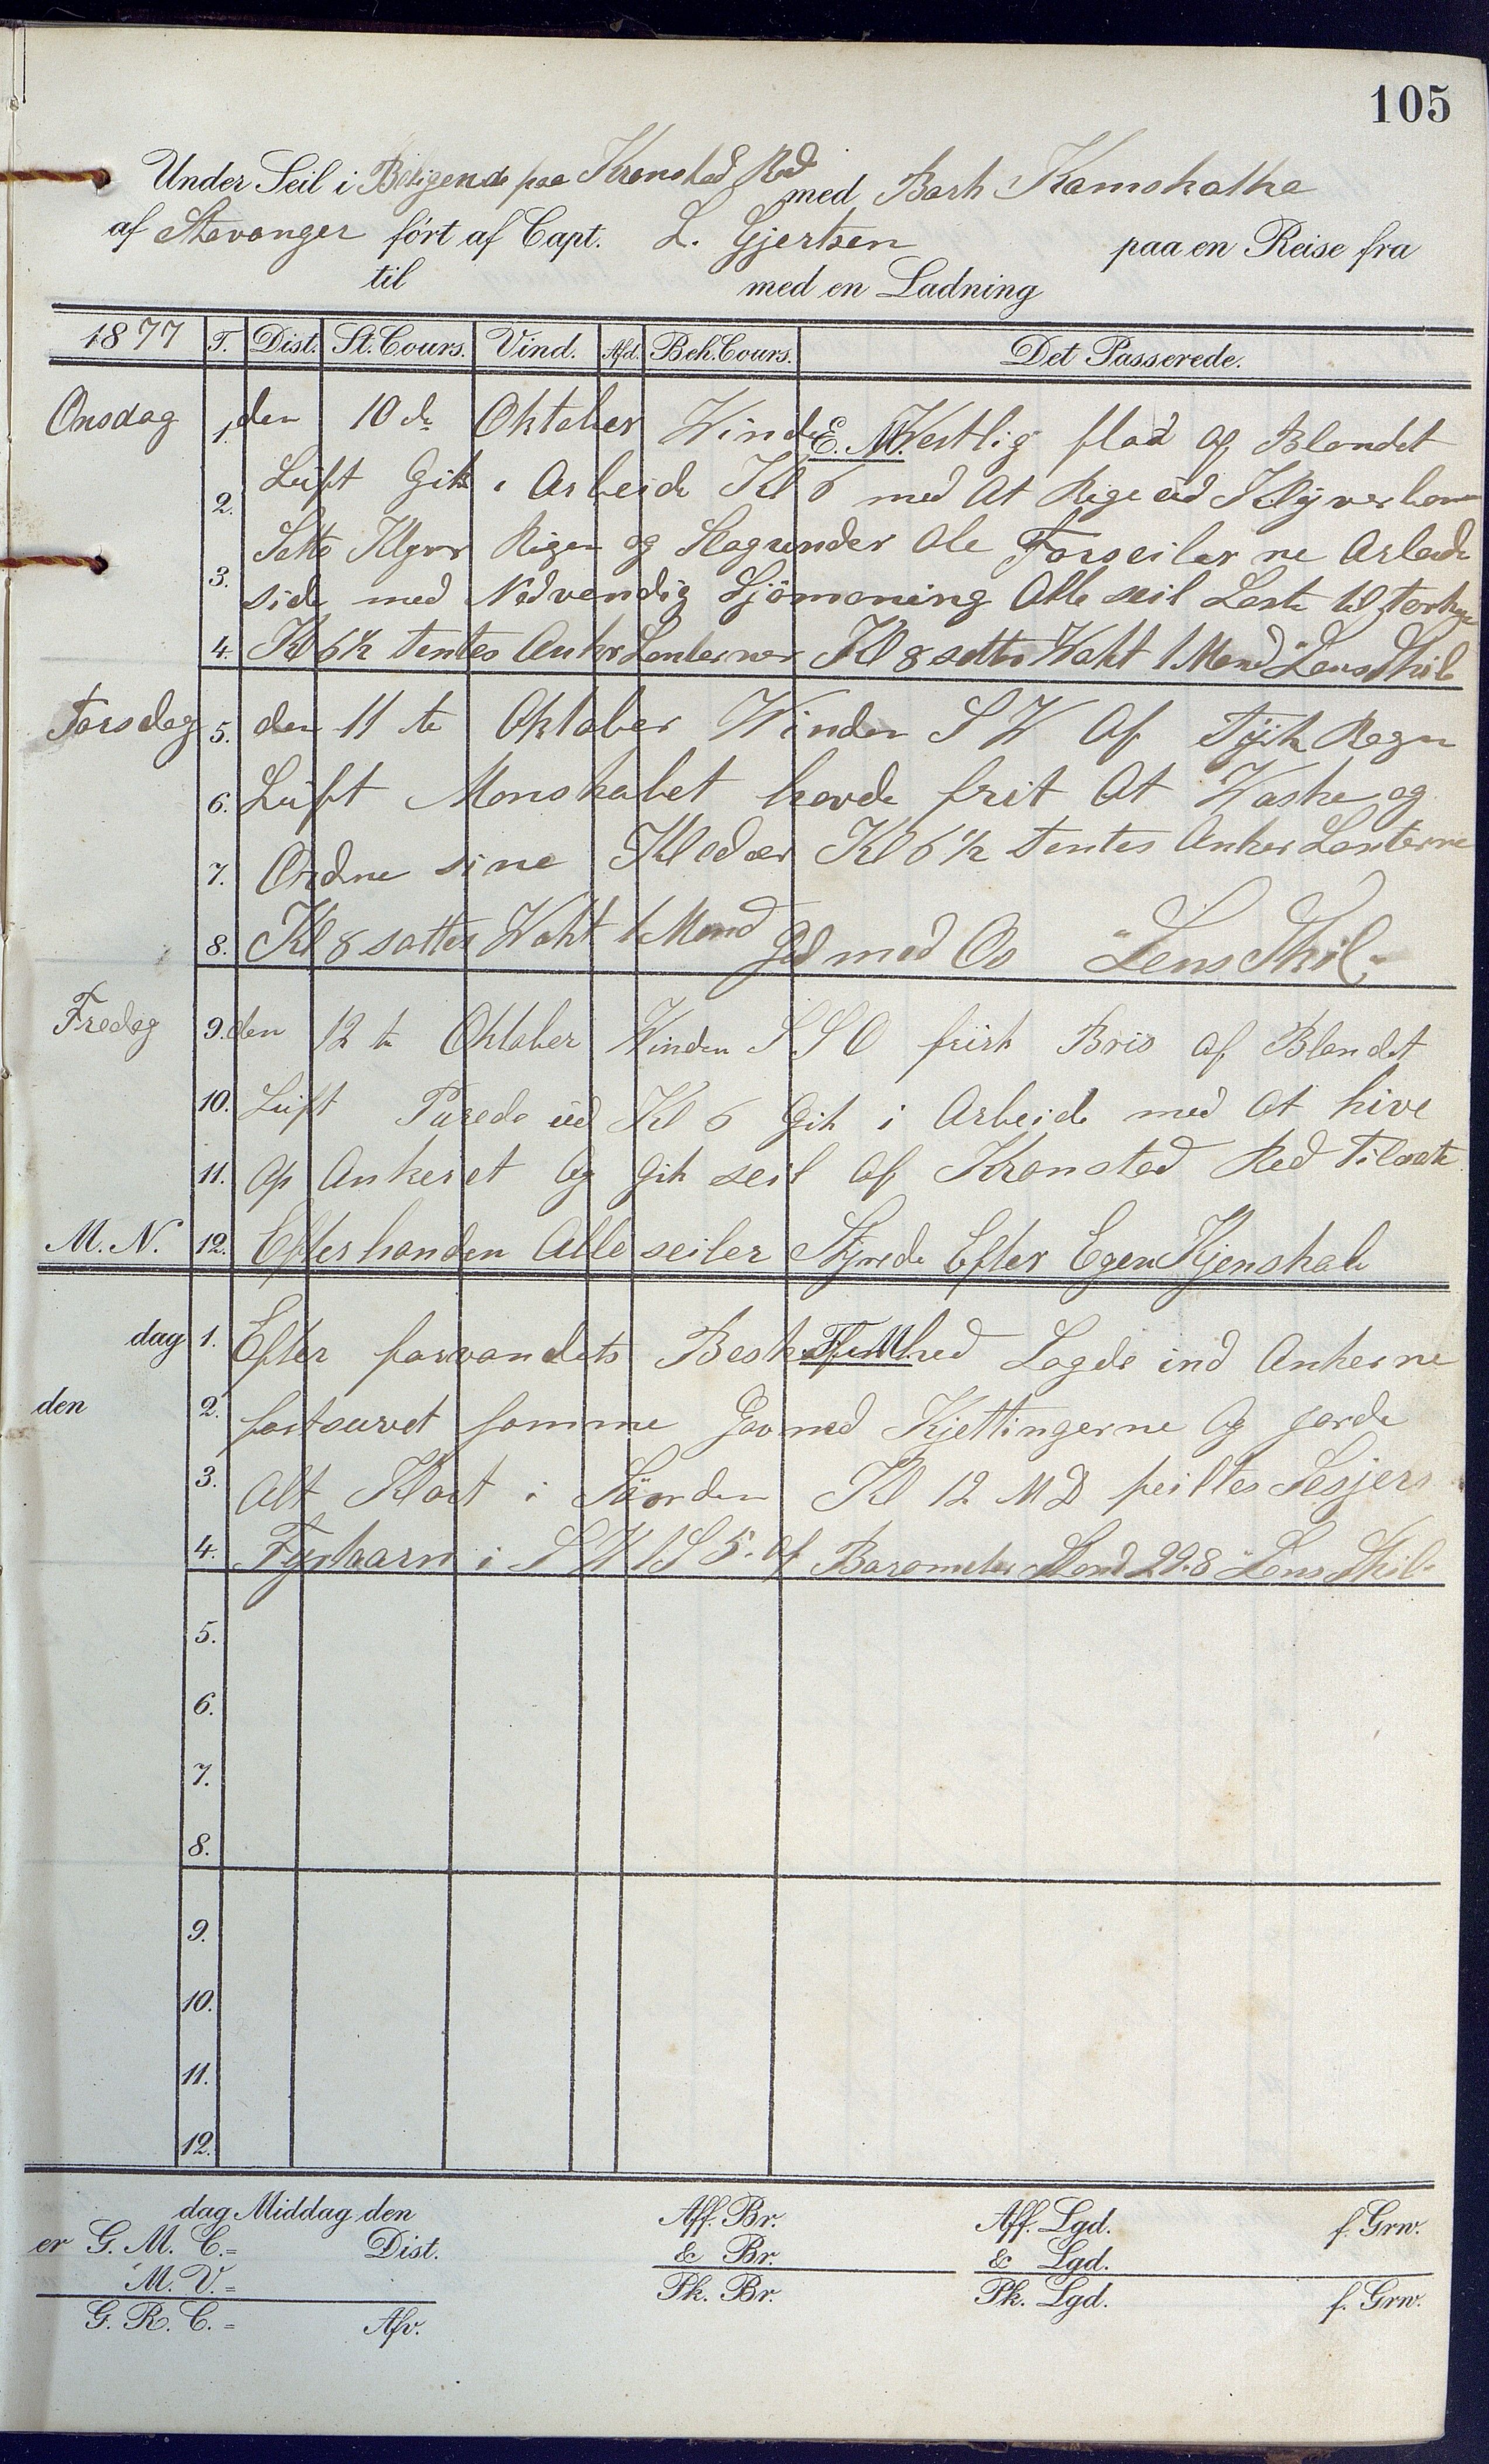 105
Under Seil i Beligende paa Kronstad Red med Bark Kamskatka
af Stavanger ført af Capt. L. Gjertsen paa en Reise fra
til med en Ladning
1877 T. Dist. St. Cours. Vind. Afd. Beh. Cours. Det Passerede.
E. M.
Onsdag 1. den 10de Oktober Winden Westlig flad og Blandet
2. Lüft Gik i Arbeide Kl 6 med At Rige üd Klÿverbom
3. Satte Klyver Rigen og Slog under Ale Forseilerne Arbeide
side med Nødvendig Sjömoning Alle seil Løste til Torkge
4. Kl 6½ tentes Anker Lanterner Kl 8 sattes Wakt 1 Mand Lens Skib
Torsdag 5. den 11te Oktober Winden SW Af Tÿk Regn
6. Lüft Manskabet havde frit At Waske og
7. Ordne sine Klæder Kl 6½ tentes Anker Lanterne
8. Kl 8 sattes Wakt 1 Mand Gud med Os Lens Skib
Fredag 9. den 12te Oktober Winden SSO frisk Bris af Blandet
10. Lüft Purede üd Kl 6 Gik i Arbeide med At hive
11. Op Ankeret Og Gik seil af Kronstad Red Tilsatte
M. N. 12. Efterhanden Alle seiler Styrede Efter Egen Kjenskab
F. M.
dag 1. Efter farvandets Beskaffenhed Lagde ind Ankerne
den 2. fastsurret samme Gav ned Kjettingerne Og gjorde
3. Alt Klart i Söen Kl 12 MD peiltes Sesjers
4. Fyrtaarn i SW½S 5 af Barometer Stand 29.8 Lens Skib
5.
6.
7.
8.
9.
10.
11.
12.
dag Middag den Aff. Br. Aff. Lgd. f. Grw.
er G. M. C.= Dist. & Br. & Lgd.
M. V.= Pk. Br. Pk. Lgd. f. Grw.
G. R. C.= Afv.